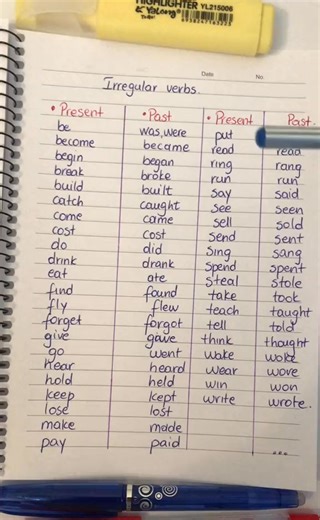 HIGHLIGHTER YL215006
Yalong
Date No.
Irregular verbs.
• Present • Past • Present Past
be was,were put
become became read read
begin began ring rang
break broke run run
build built say said
catch caught see seen
come came sell sold
cost cost send sent
do did sing sang
drink drank spend spent
eat ate steal stole
find found take took
fly flew teach taught
forget forgot tell told
give gave think thought
go went wake woke
hear heard wear wove
hold held win won
keep kept write wrote.
lose lost
make made
pay paid